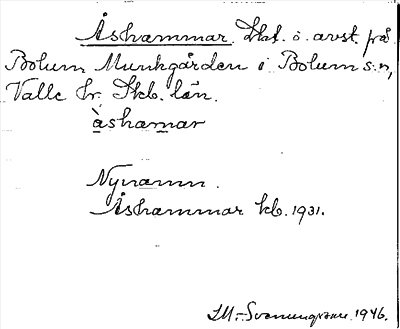 Åshammar. Lht. ö. avst. på
Bolum Munkgården i Bolum s:n,
Valle hr. Skb. län.
àshamar
Nynamn.
Åshammar kb. 1931.
1946.